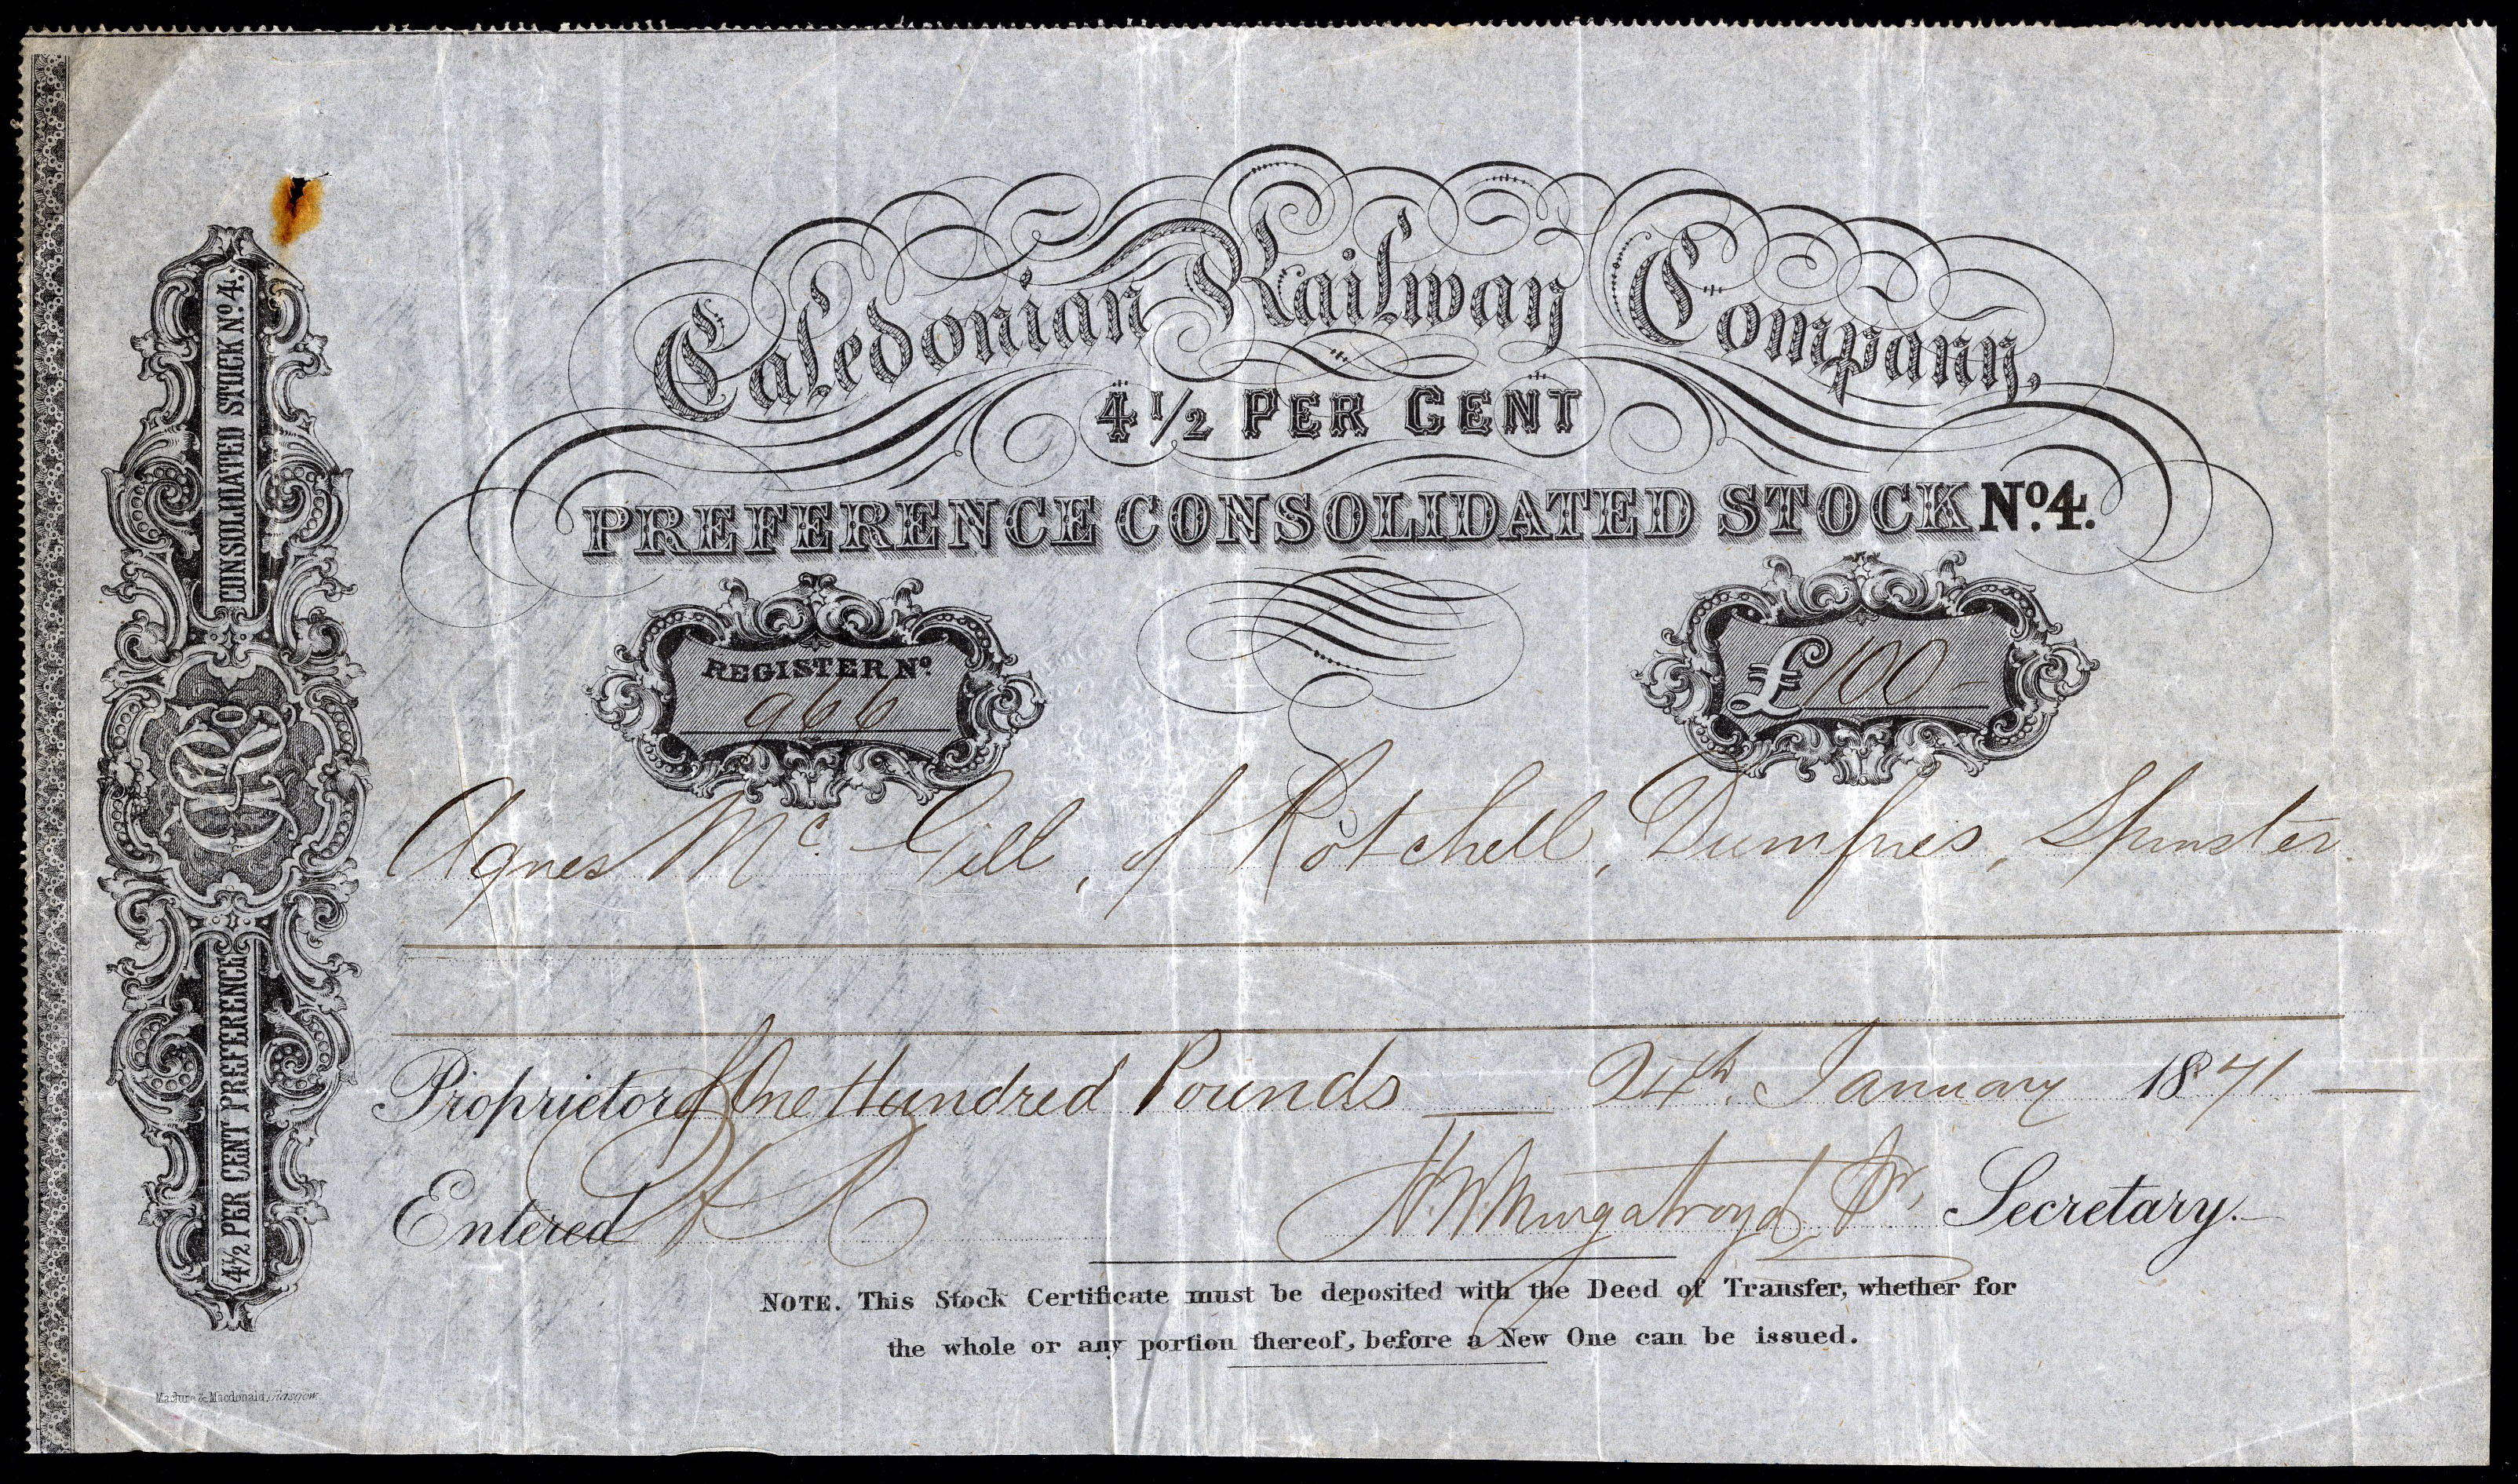 Caledonian Railway Company,
4 1/2 PER CENT
PREFERENCE CONSOLIDATED STOCK No. 4.
REGISTER No.
966
£100-
Agnes Mc Gill, of Rotchell, Dumfries, Spinster
Proprietor of One Hundred Pounds — 24th. January 1871 —
Entered
Murgatroyd, Secretary.
NOTE. This Stock Certificate must be deposited with the Deed of Transfer, whether for
the whole or any portion thereof, before a New One can be issued.
4½ PER CENT PREFERENCE CONSOLIDATED STOCK No. 4.
Maclure & Macdonald, Glasgow